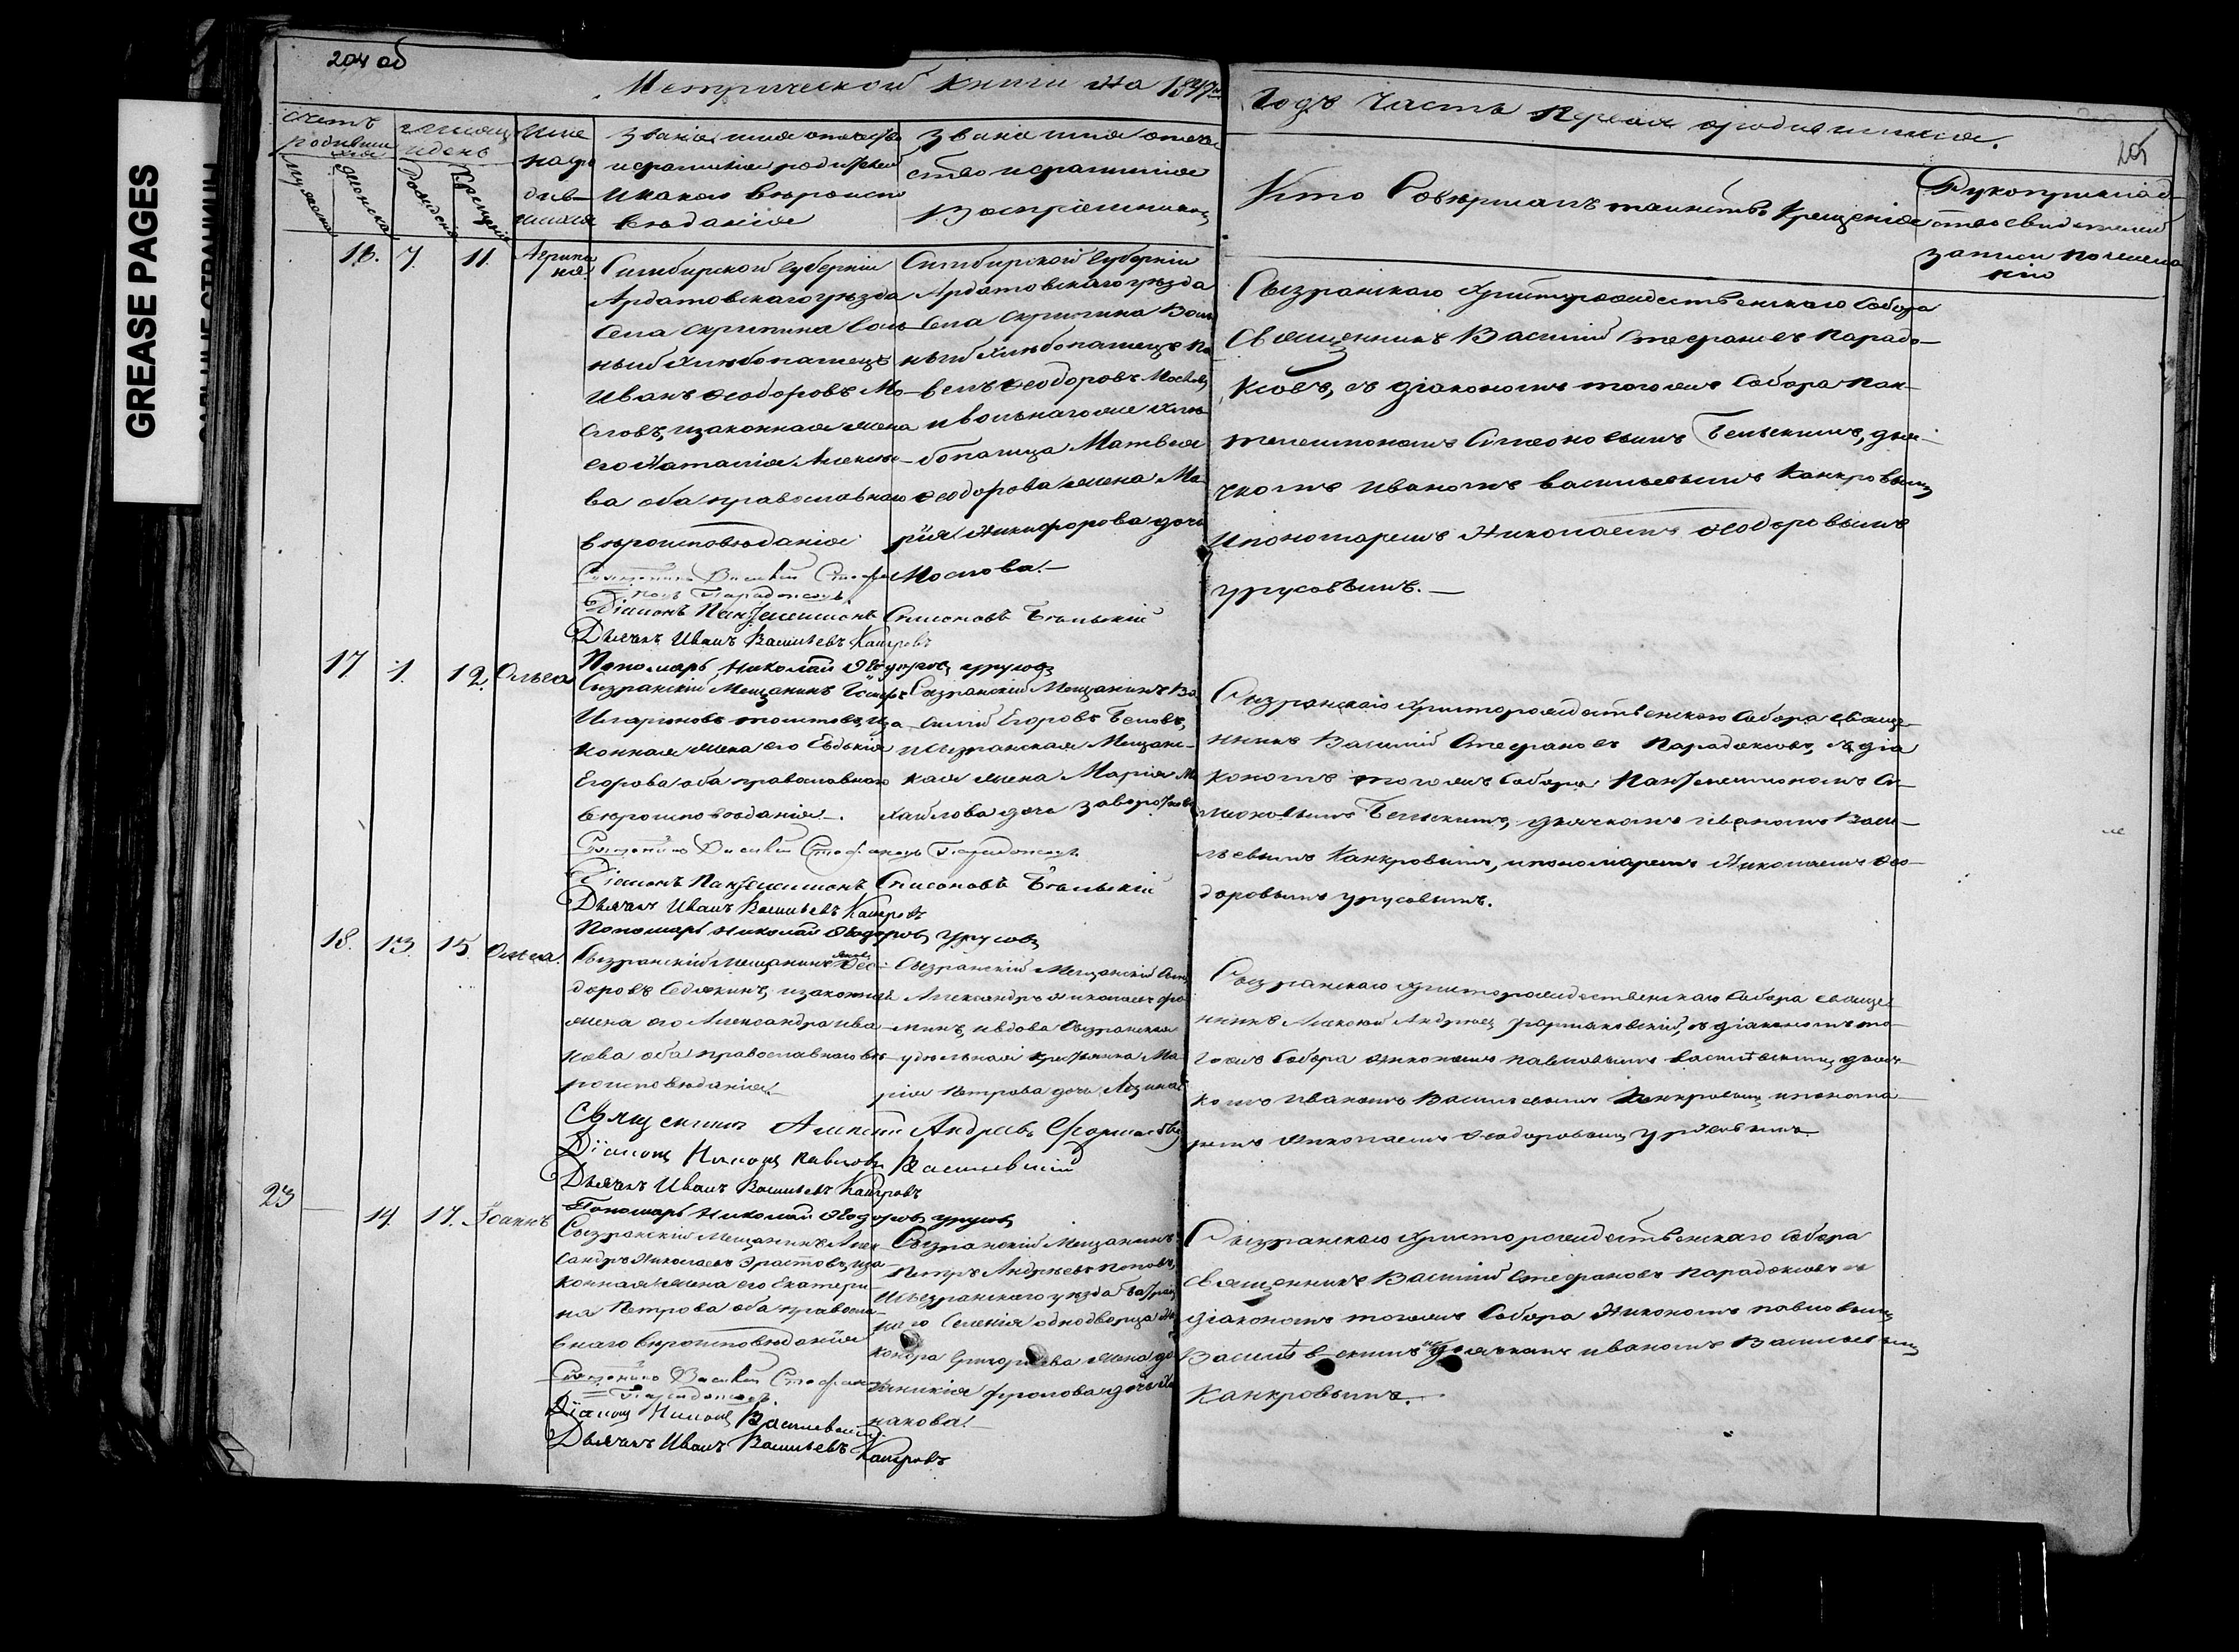 GREASE PAGES
204 об
Метрической книги на 1847й
Годъ Часть Первая о родившихся.
205
счетъ родившихся
мужеска
женска
месяцъ и день
рожденія
крещенія
Имя народившихся
Званіе имя отчество
и фамилія родителей
и какого вероиспо
веданія
Званіе имя отче
ство и фамилія
Воспріемниковъ
Кто Совершалъ таинство крещенія
Рукоприклад
ство свидетелей
записи по жела
нію
16. 7. 11. Агрипина
Симбирской Губерніи
Ардатовскаго уезда
Села Скрипина воль
ный хлебопашецъ
Иванъ Феодоровъ Мо
словъ, и законная жена
его Наталія Алексее
ва оба православнаго
вероисповеданія
Симбирской Губерніи
Ардатовскаго уезда
Села Скрипина Воль
ный хлебопашецъ Па
велъ Феодоровъ
и вольнаго же хле
бопашца Матвея
Феодорова жена Ма
рія Никифорова дочь
Мослова.
Сызранскаго Христорождественскаго Собора
Священникъ Василій Стефановъ Парадо
ксовъ, съ діакономъ тогоже Собора Пан
телеимономъ Симеоновымъ Бельскимъ, дья
чкомъ Иваномъ Васильевымъ Канкровымъ
и пономаремъ Николаемъ Феодоровымъ
Урусовымъ.
Священникъ Василій Стефановъ Парадоксовъ
Діаконъ Пантелеимонъ Симеоновъ Бельскій
Дьячекъ Иванъ Васильевъ Канкровъ
Пономарь Николай Феодоровъ Урусовъ
17 1. 12. Ольга
Сызранскій Мещанинъ
Иларіоновъ и за
конная жена его Евдокія
Егорова оба православнаго
вероисповеданія.
Сызранскій Мещанинъ Ва
силій Егоровъ Беловъ,
и Сызранская Мещанс
кая жена Марія Ми
хайлова дочь
Сызранскаго Христорождественскаго Собора священ
никъ Василій Стефановъ Парадоксовъ, съ діа
кономъ тогожъ Собора Пантелеимономъ Си
меоновымъ Бельскимъ, дьячкомъ Иваномъ Васи
льевымъ Канкровымъ, и пономаремъ Николаемъ Фео
доровымъ Урусовымъ.
Священникъ Василій Стефановъ Парадоксовъ
Діаконъ Пантелеимонъ Симеоновъ Бельскій
Дьячекъ Иванъ Васильевъ Канкровъ
Пономарь Николай Феодоровъ Урусовъ
18. 13. 15. Ольга.
Сызранскій Мещанинъ Фео
доровъ Седякинъ, и законная
жена его Александра Ива
нова оба православнаго ве
роисповеданія.
Сызранскій Мещанскій сынъ
Александръ Николаевъ Фо
минъ, и вдова Сызранская
удельная крестьянка Ма
рія Петрова дочь
Сызранскаго Христорождественскаго Собора священ
никъ Алексей Андреевъ Формаковскій, съ діакономъ то
гожъ Собора Никономъ Павловымъ Васильевскимъ, дьяч
комъ Иваномъ Васильевымъ Канкровымъ и понома
ремъ Николаемъ Феодоровымъ Урусовымъ.
Священникъ Алексей Андреевъ
Діаконъ Никонъ Павловъ Васильевскій
Дьячекъ Иванъ Васильевъ Канкровъ
Пономарь Николай Феодоровъ Урусовъ
23 14. 17. Іоаннъ
Сызранскій Мещанинъ Алек
сандръ Николаевъ Эрастовъ, и за
конная жена его Екатери
на Петрова оба правосла
внаго вероисповеданія
Сызранскій Мещанинъ
Петръ Андреевъ Поповъ,
и Сызранскаго уезда
селенія однодворца Ни
канора Григорьева жена
Фролова дочь
Сызранскаго Христорождественскаго Собора
Священникъ Василій Стефановъ Парадоксовъ съ
діакономъ тогожъ Собора Никономъ Павловымъ
Васильевскимъ дьячкомъ Иваномъ Васильевымъ
Канкровымъ.
Священникъ Василій Стефановъ Парадоксовъ
Діаконъ Никонъ Васильевскій
Дьячекъ Иванъ Васильевъ Канкровъ